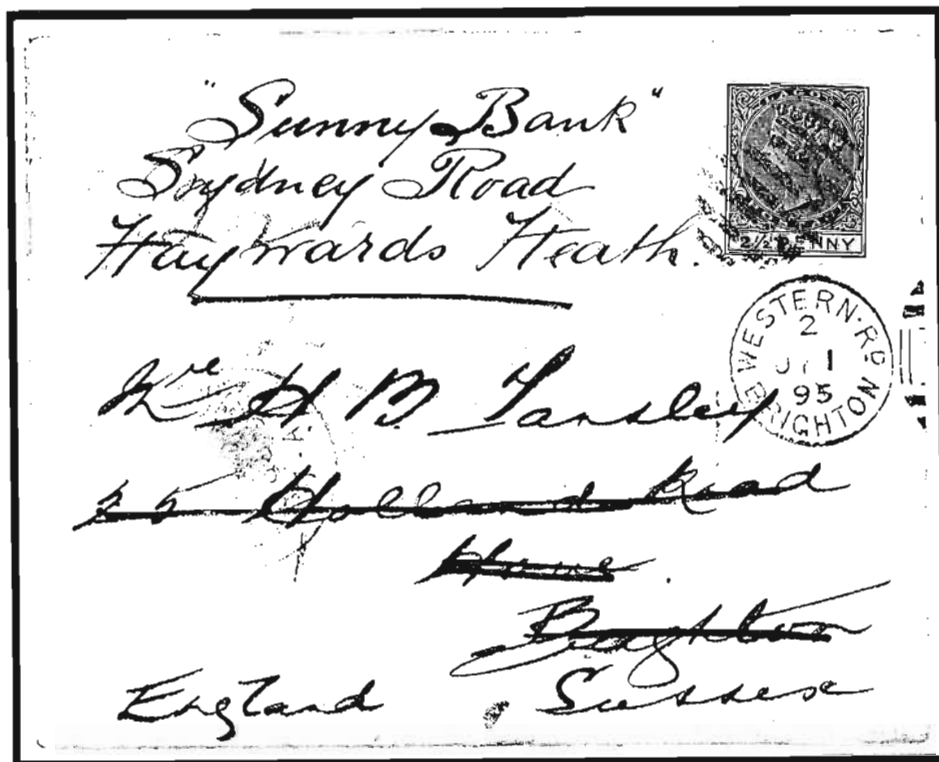 "Sunny Bank"
Sydney Road
Haywards Heath.
LAGOS
2½ PENNY
WESTERN·RD
2
JY 1
95
BRIGHTON
H B Tansley
25 Holland Road
Hove.
Brighton
England Sussex